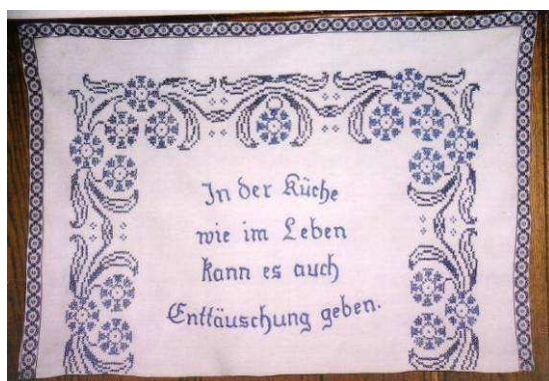 In der Küche
wie im Leben
kann es auch
Enttäuschung geben.